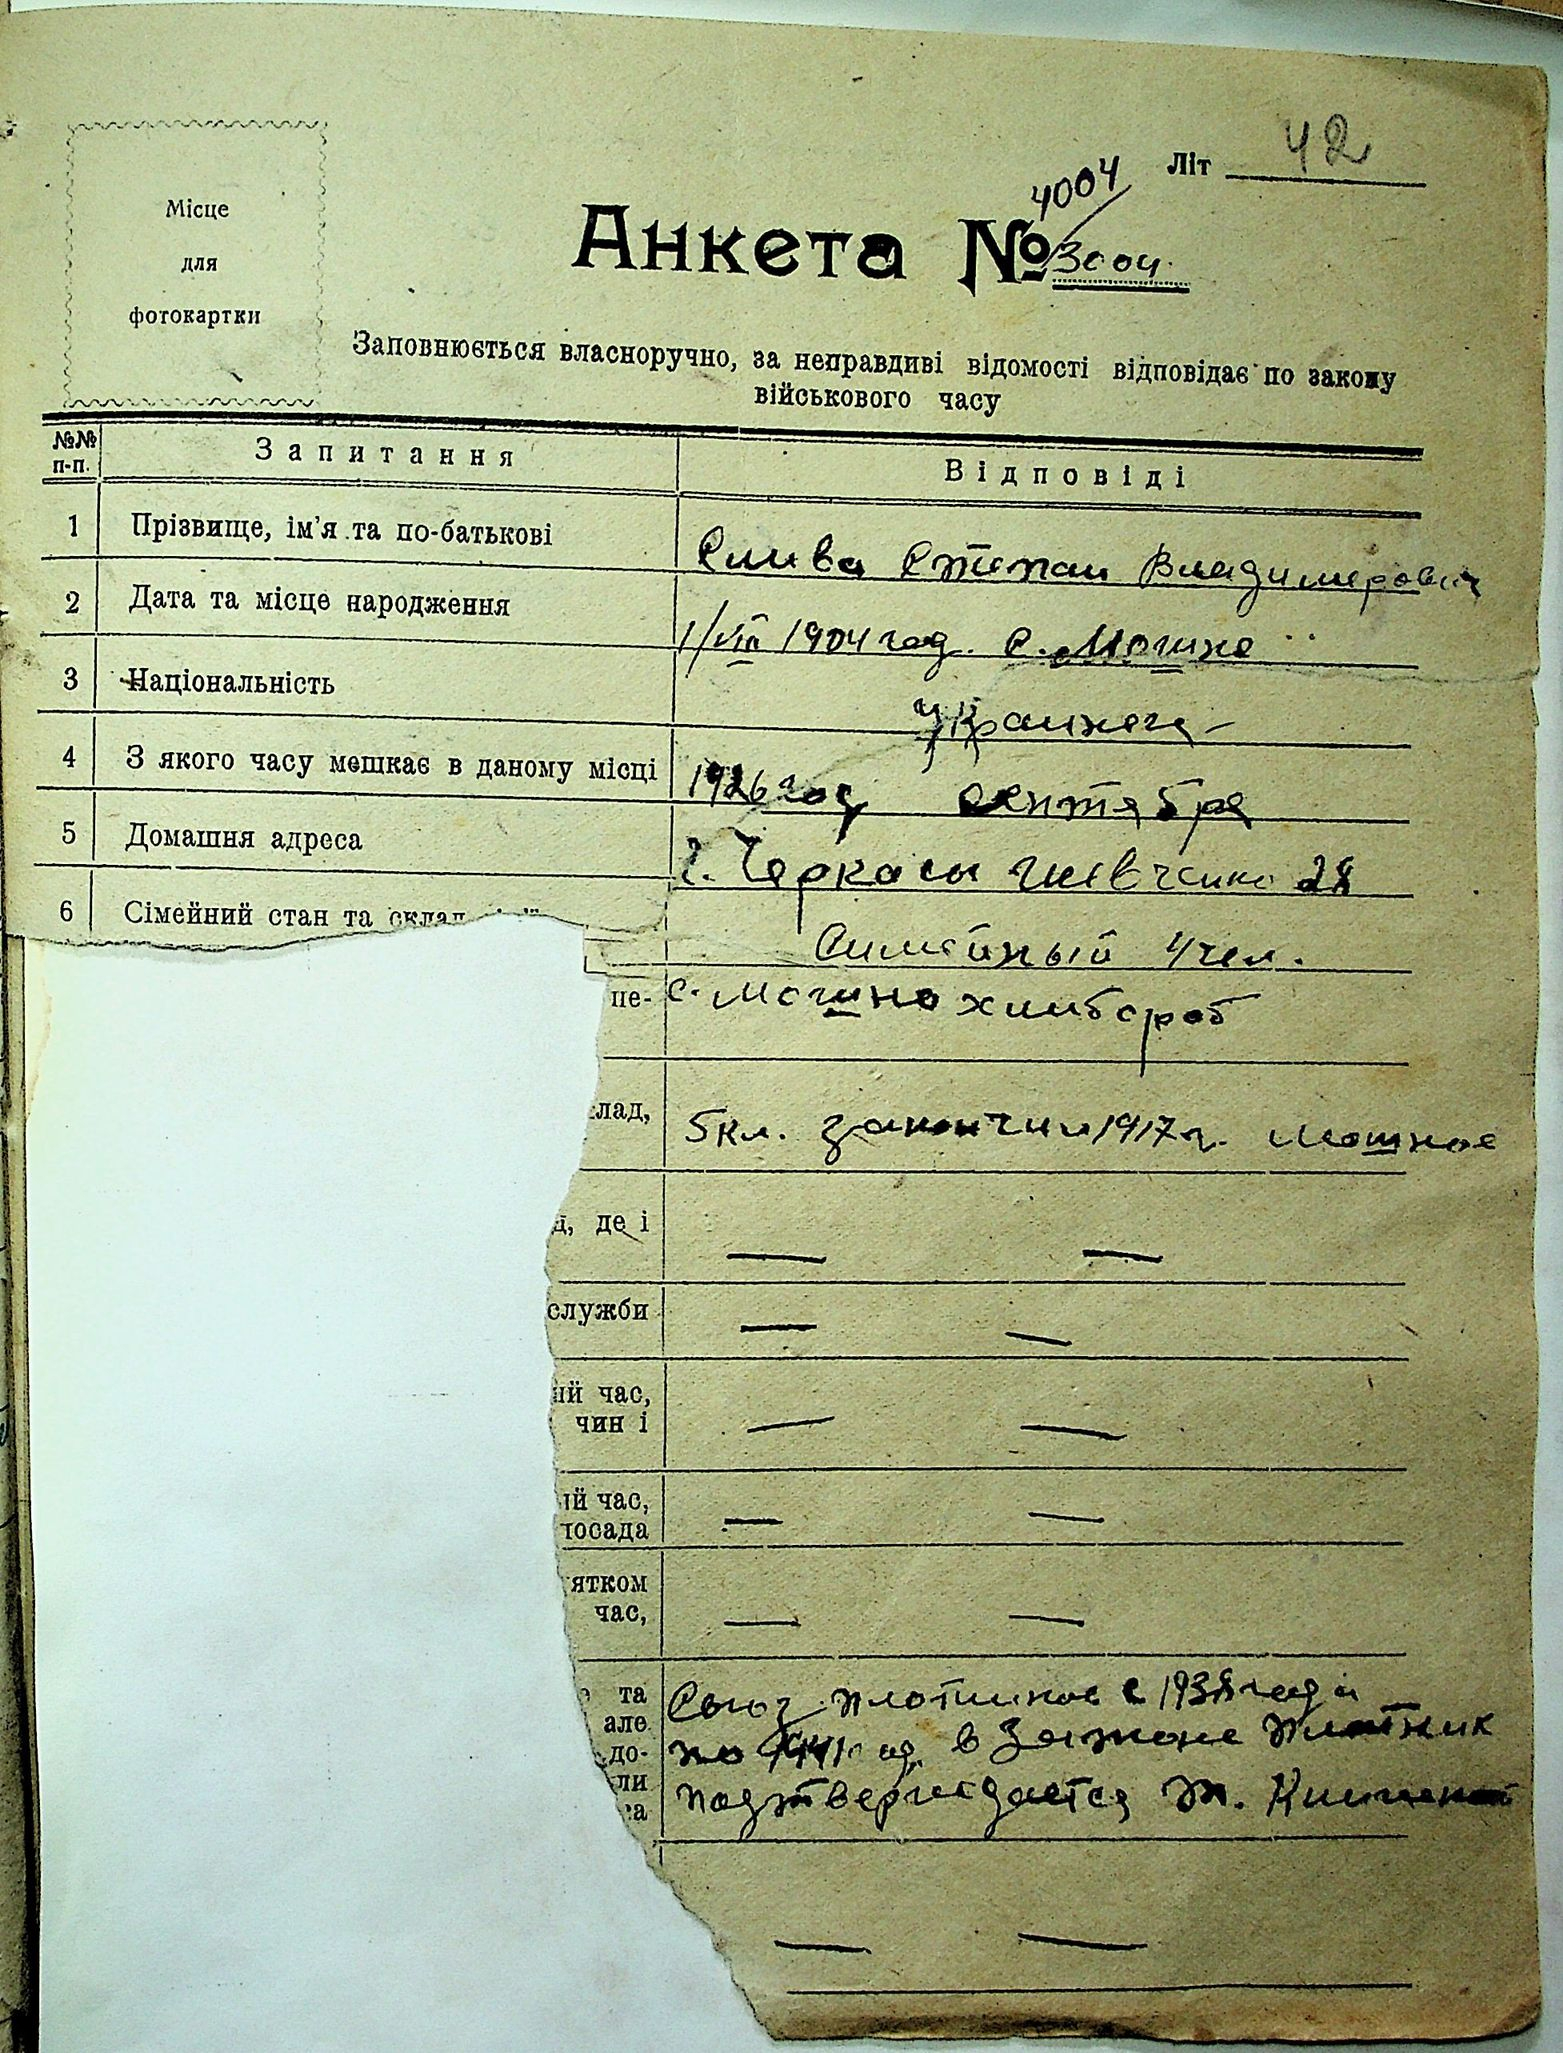 Літ 42
4004
Анкета № 3004
Місце
для
фотокартки
Заповнюється власноручно, за неправдиві відомості відповідає по закону
військового часу
№№ п-п. Запитання Відповіді
1 Прізвище, ім'я та по-батькові Слива Степан Владимирович
2 Дата та місце народження 1/VIII 1904 год. с. Мошне
3 Національність Украинец
4 З якого часу мешкає в даному місці 1926 год сентября
5 Домашня адреса г. Черкасы Шевченко 28
6 Сімейний стан та склад Симейный 4 чел.
пе- с. Мошно хлибороб
клад, 5 кл. закончил 1917 г. Мошное
д, де і — —
служби — —
ий час,
чин і — —
ий час,
посада — —
ятком
час, — —
та Союз плотников с 1938 года
але по 1941 год в
до- плотник
ли подтверждается
са
— —